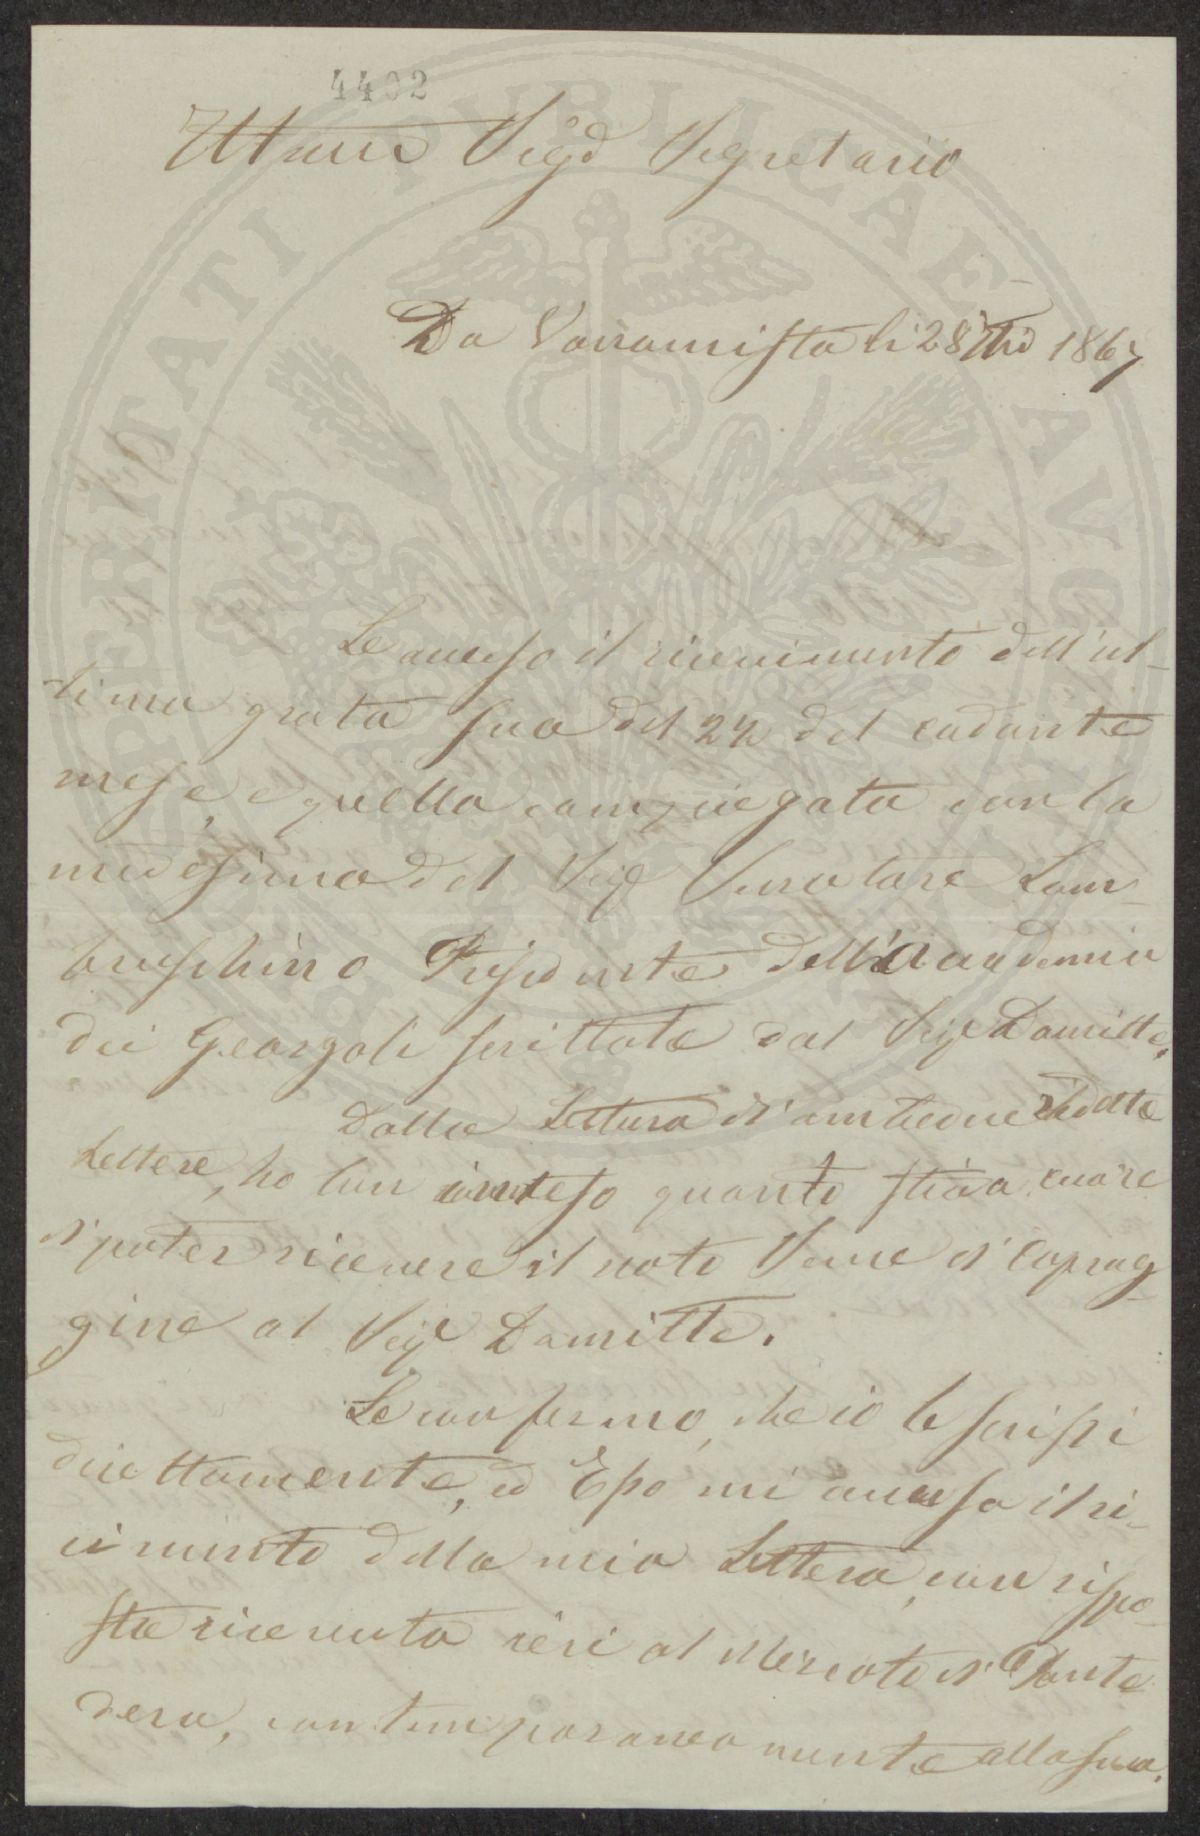 4402
Ill.mo Sig.r Segretario
Da Varramista li 28 1867
Le accuso il ricevimento dell'ul-
tima grata sua del 24 del cadante
mese, e quella compiegata con la
medesima del Sig.e Senatore Lam-
bruschino Presidente dell'Accademia
dei Georgofi scrittole dal Sig.e Damitte.
Dalla Lettura di ambedue le dette
Lettere, ho ben inteso quanto stia a cuore
di poter ricevere il noto Seme di Caprag
gine al Sig.e Damitte.
Le confermo, che io le scrissi
direttamente, ed Esso mi accusa il ri-
cimento della mia Lettera, con rispo-
sta ricevuta ieri al Mercato di Ponte
dera, contemporaneamente alla sua.
PROSPERITATI PVBLICAE AVGENDAE